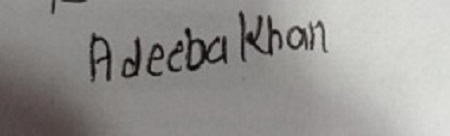 Adeeba Khan